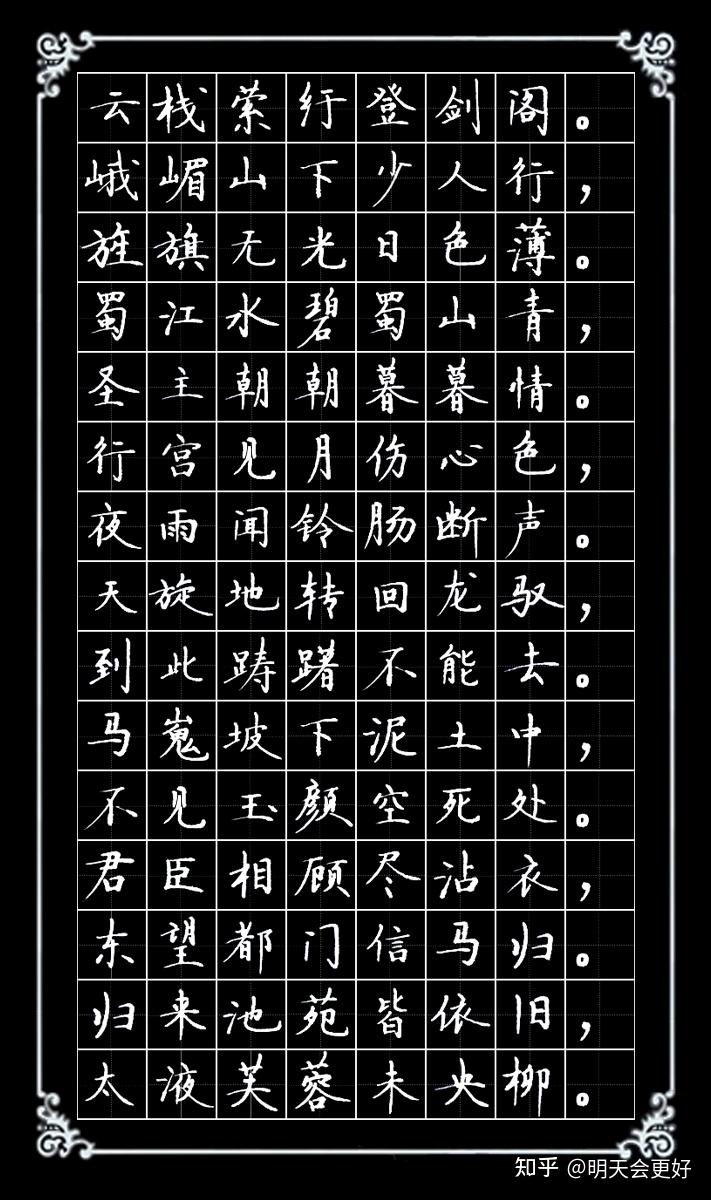 云栈萦纡登剑阁。
峨嵋山下少人行，
旌旗无光日色薄。
蜀江水碧蜀山青，
圣主朝朝暮暮情。
行宫见月伤心色，
夜雨闻铃肠断声。
天旋地转回龙驭，
到此踌躇不能去。
马嵬坡下泥土中，
不见玉颜空死处。
君臣相顾尽沾衣，
东望都门信马归。
归来池苑皆依旧，
太液芙蓉未央柳。
知乎 @明天会更好